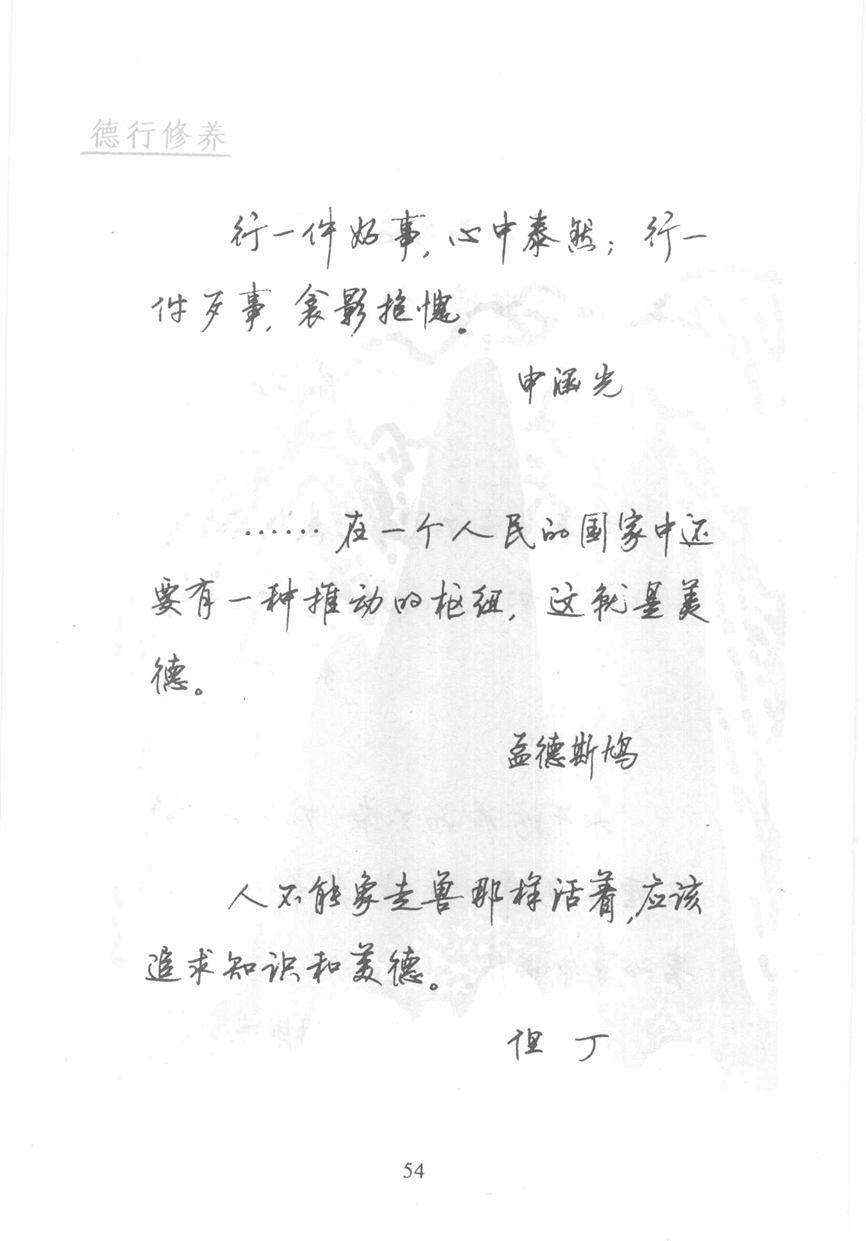 德行修养
行一件好事，心中泰然；行一
件歹事，衾影抱愧。
申涵光
……在一个人民的国家中还
要有一种推动的枢纽，这就是美
德。
孟德斯鸠
人不能象走兽那样活着，应该
追求知识和美德。
但丁
54